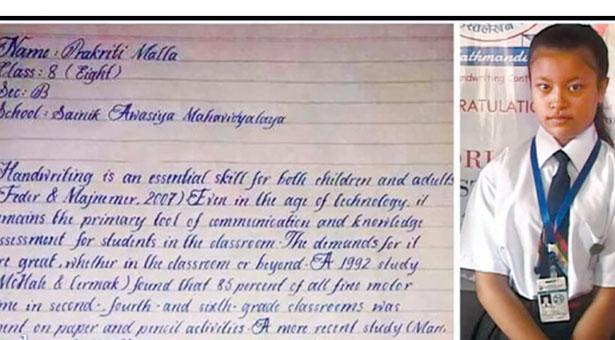 Name : Prakriti Malla
Class : 8 (Eight)
Sec : B
School : Sainik Awasiya Mahavidyalaya
Handwriting is an essential skill for both children and adults
Feder & Majnemer, 2007) Even in the age of technology, it
emains the primary tool of communication and knowledge
ssessment for students in the classroom. The demands for it
re great, whether in the classroom or beyond. A 1992 study
McHale & Cermak) found that 85 percent of all fine motor
me in second-, fourth- and sixth-grade classrooms was
ent on paper and pencil activities. A more recent study (Marr
athmand
ndwriting Cont
RATULATI